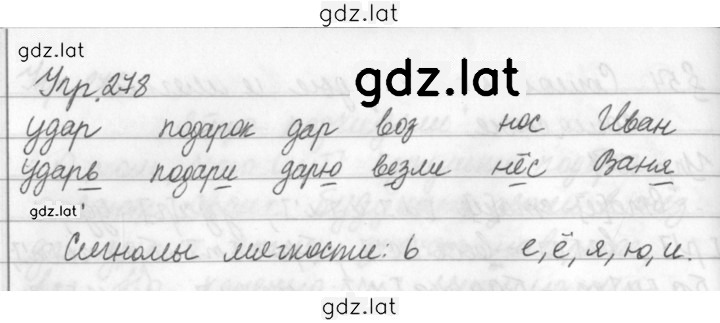 gdz.lat
gdz.lat
Упр. 278
gdz.lat
удар подарок дар воз нос Иван
ударь подари дарю везли нёс Ваня
gdz.lat
Сигналы мягкости: ь е, ё, я, ю, и.
gdz.lat